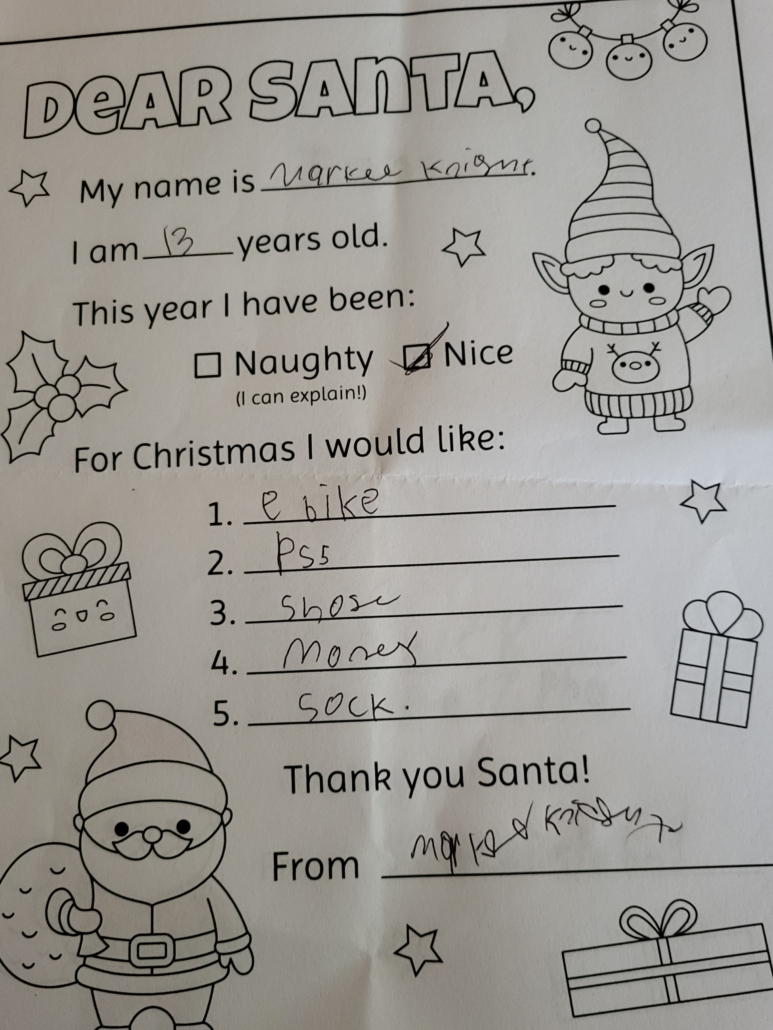 DeAR SANTA,
My name is Markee Knight.
I am 13 years old.
This year I have been:
Naughty Nice
(I can explain!)
For Christmas I would like:
1. e bike
2. PS5
3. shose
4. Money
5. SOCK.
Thank you Santa!
From Markee Knight